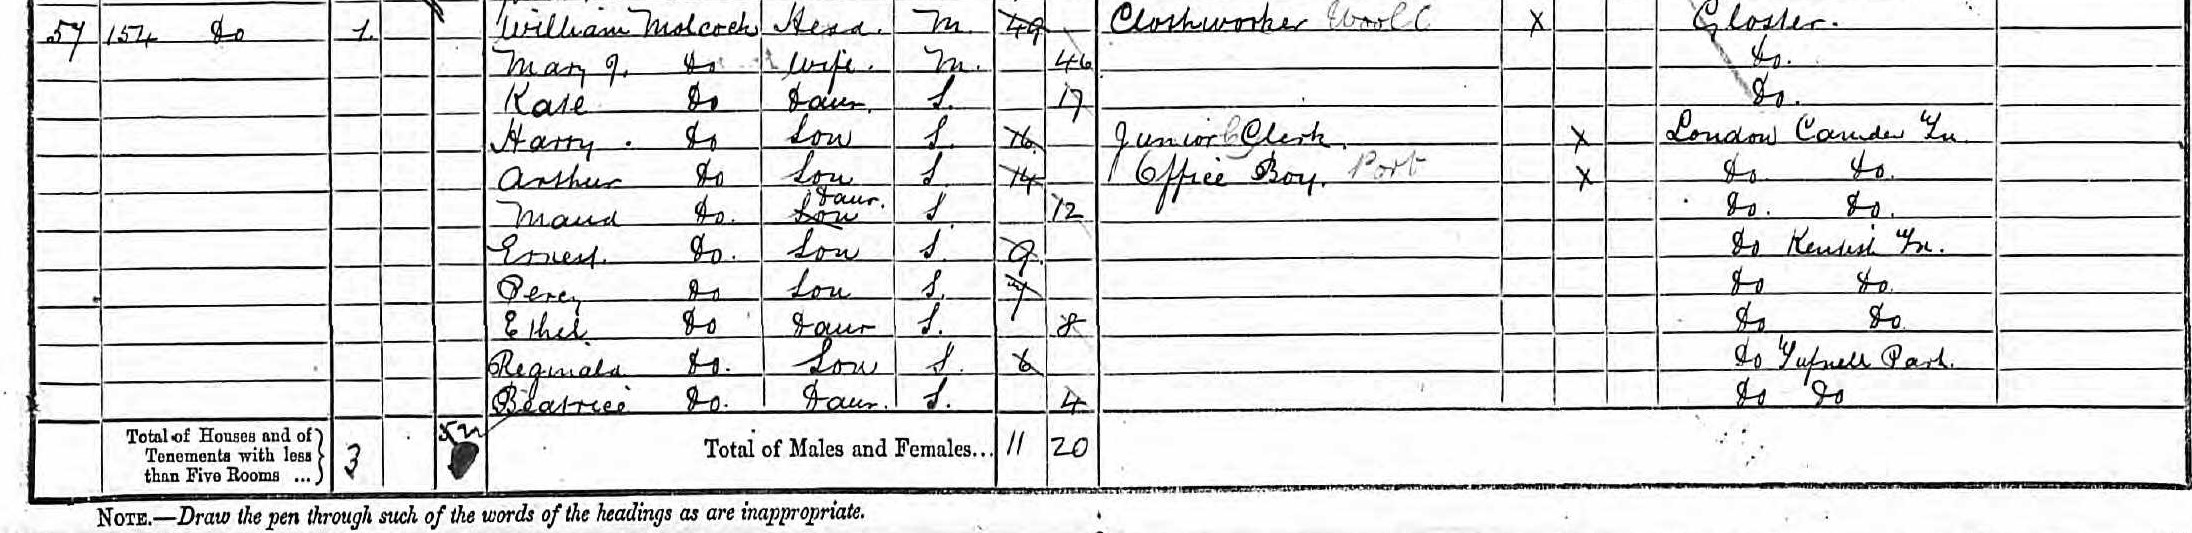 57 154 Do 1. William Molcock Head. M. 49 Clothworker Wool C X Gloster.
Mary J. Do Wife. M. 46 Do.
Kate Do Daur. S. 17 Do.
Harry. Do Son S. 16 Junior Clerk. X London Camden Tn.
Arthur Do Son S 14 Office Boy. Port X Do. Do.
Maud Do. Son Daur. S 12 Do. Do.
Ernest. Do. Son S. 9. Do Kentish Tn.
Percy Do Son S. 7 Do Do.
Ethel Do Daur S. 8 Do Do.
Reginald Do. Son S. 6 Do Tufnell Park.
Beatrice Do. Daur. S. 4 Do Do
Total of Houses and of
Tenements with less
than Five Rooms ... 3 Total of Males and Females... 11 20
NOTE.—Draw the pen through such of the words of the headings as are inappropriate.